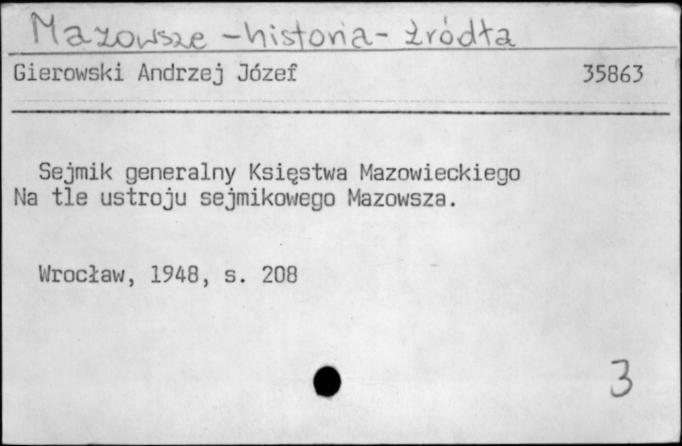 Mazowsze - historia - źródła
Gierowski Andrzej Józef 35863
Sejmik generalny Księstwa Mazowieckiego
Na tle ustroju sejmikowego Mazowsza.
Wrocław, 1948, s. 208
3